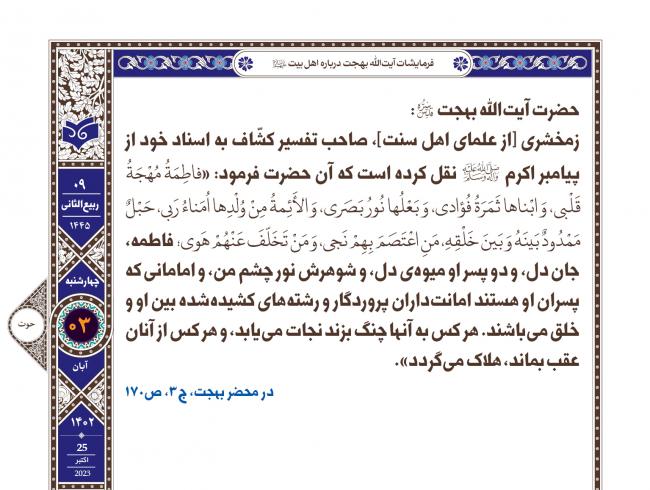 فرمایشات آیت‌الله بهجت درباره اهل بیت
حضرت آیت‌الله بهجت :
زمخشری [از علمای اهل سنت]، صاحب تفسیر کشّاف به اسناد خود از
پیامبر اکرم ﷺ نقل کرده است که آن حضرت فرمود: «فاطِمَةُ مُهْجَةُ
قَلْبی، وَ ابْناها ثَمَرَةُ فُؤادی، وَ بَعْلُها نُورُ بَصَری، وَ الأَئِمةُ مِنْ وُلْدِها اُمَناءُ رَبی، حَبْلٌ
مَمْدُودٌ بَینَهُ وَ بَینَ خَلْقِهِ، مَنِ اعْتَصَمَ بِهِمْ نَجی، وَ مَنْ تَخَلّفَ عَنْهُمْ هَوی؛ فاطمه،
جان دل، و دو پسر او میوه‌ی دل، و شوهرش نور چشم من، و امامانی که
پسران او هستند امانت‌داران پروردگار و رشته‌های کشیده‌شده بین او و
خلق می‌باشند. هر کس به آنها چنگ بزند نجات می‌یابد، و هر کس از آنان
عقب بماند، هلاک می‌گردد».
در محضر بهجت، ج۳، ص۱۷۰
۰۹
ربیع‌الثانی
۱۴۴۵
چهارشنبه
۰۳
حوت
آبان
۱۴۰۲
25
اکتبر
2023